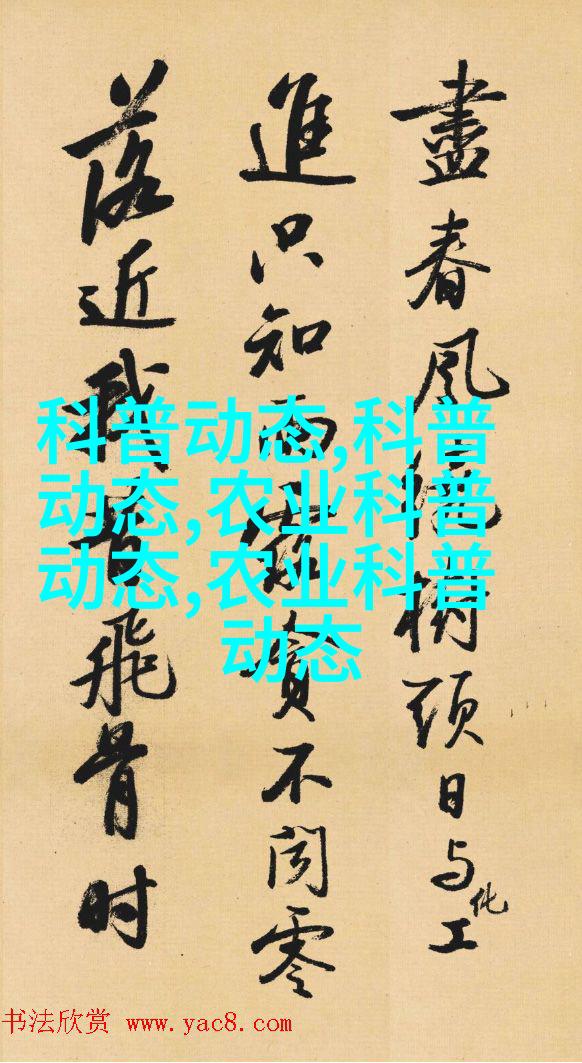 盡春風繞樹頭日与化工
進只知雨露貪不聞零
落近我昔飛骨时
科普动态,科普
动态,农业科普
动态,农业科普
动态
书法欣赏 www.yac8.com